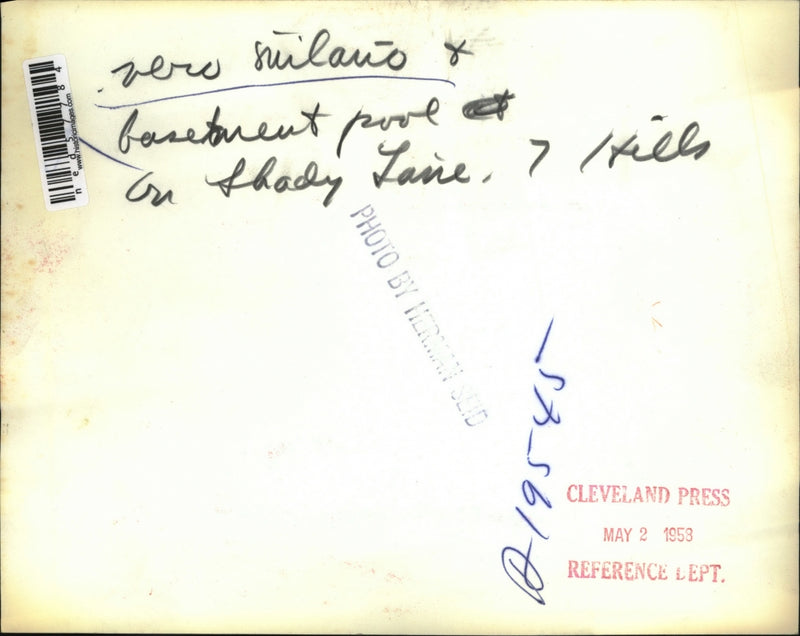 vero milano &
basement pool at
on Shady Lane. 7 Hills
www.historicimages.com
PHOTO BY HERMAN SEID
A-19545
CLEVELAND PRESS
MAY 2 1958
REFERENCE DEPT.